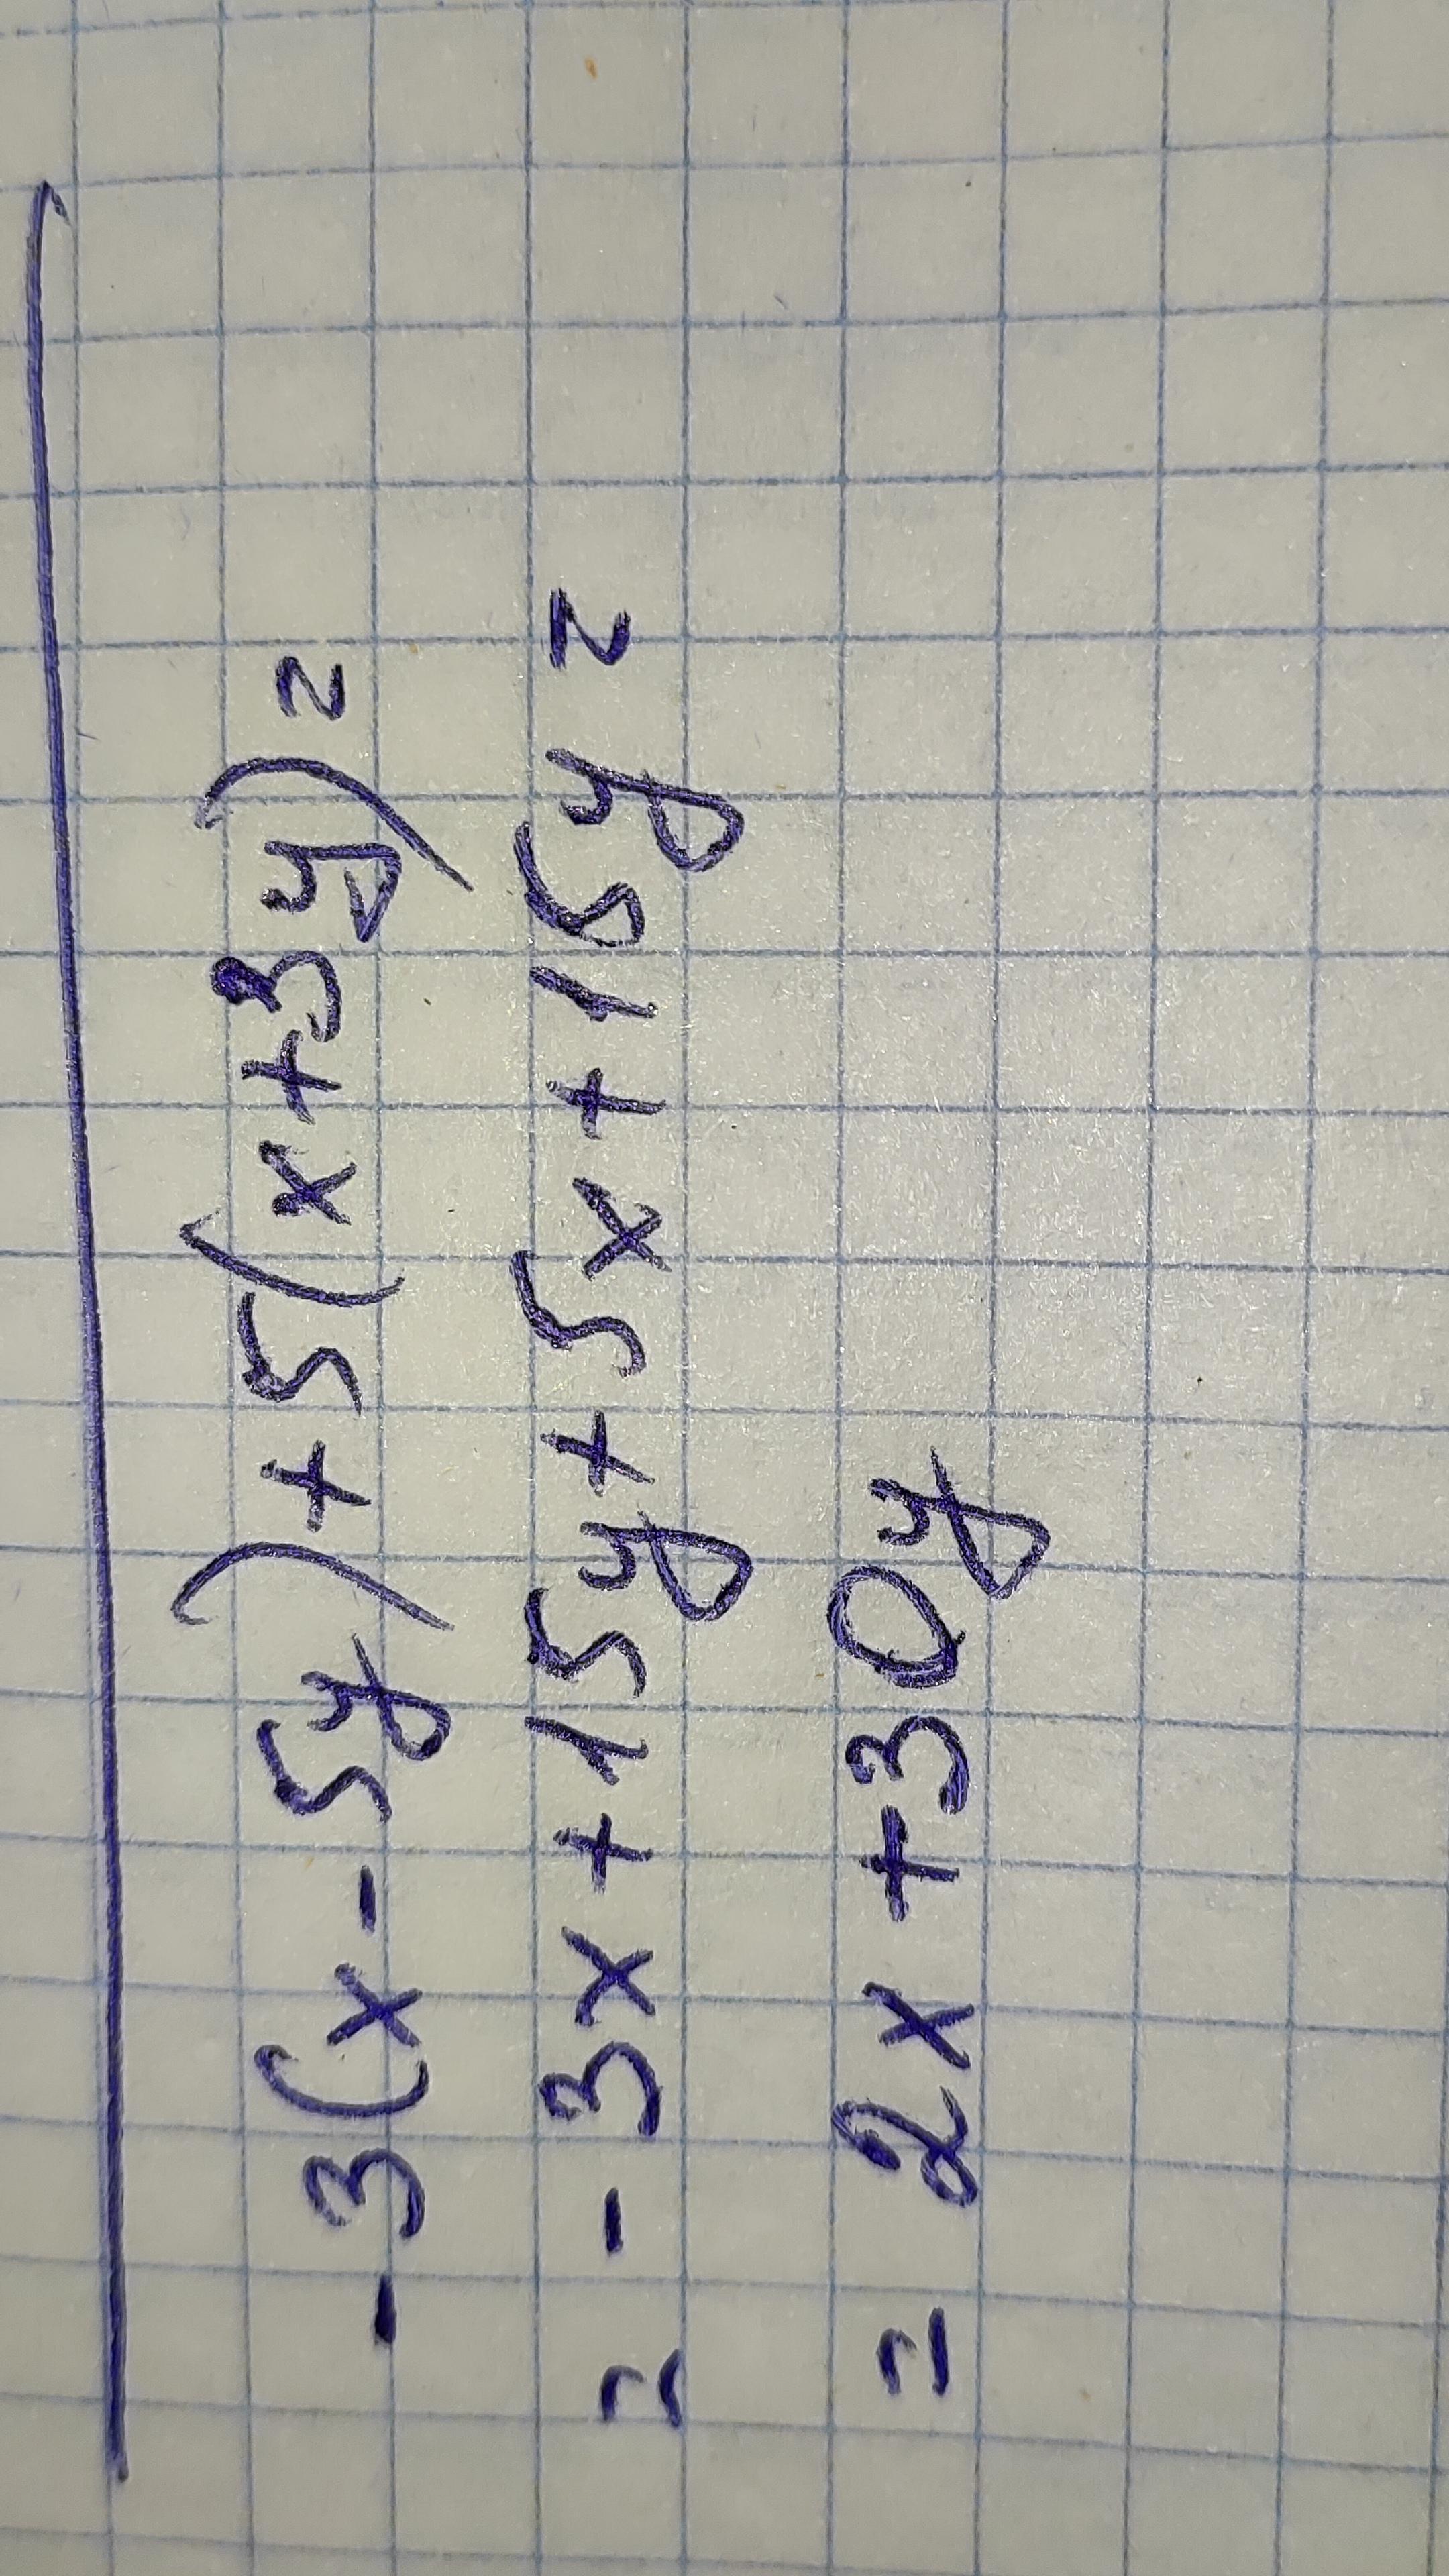 -3(x-5y)+5(x+3y)=
=-3x+15y+5x+15y=
=2x+30y